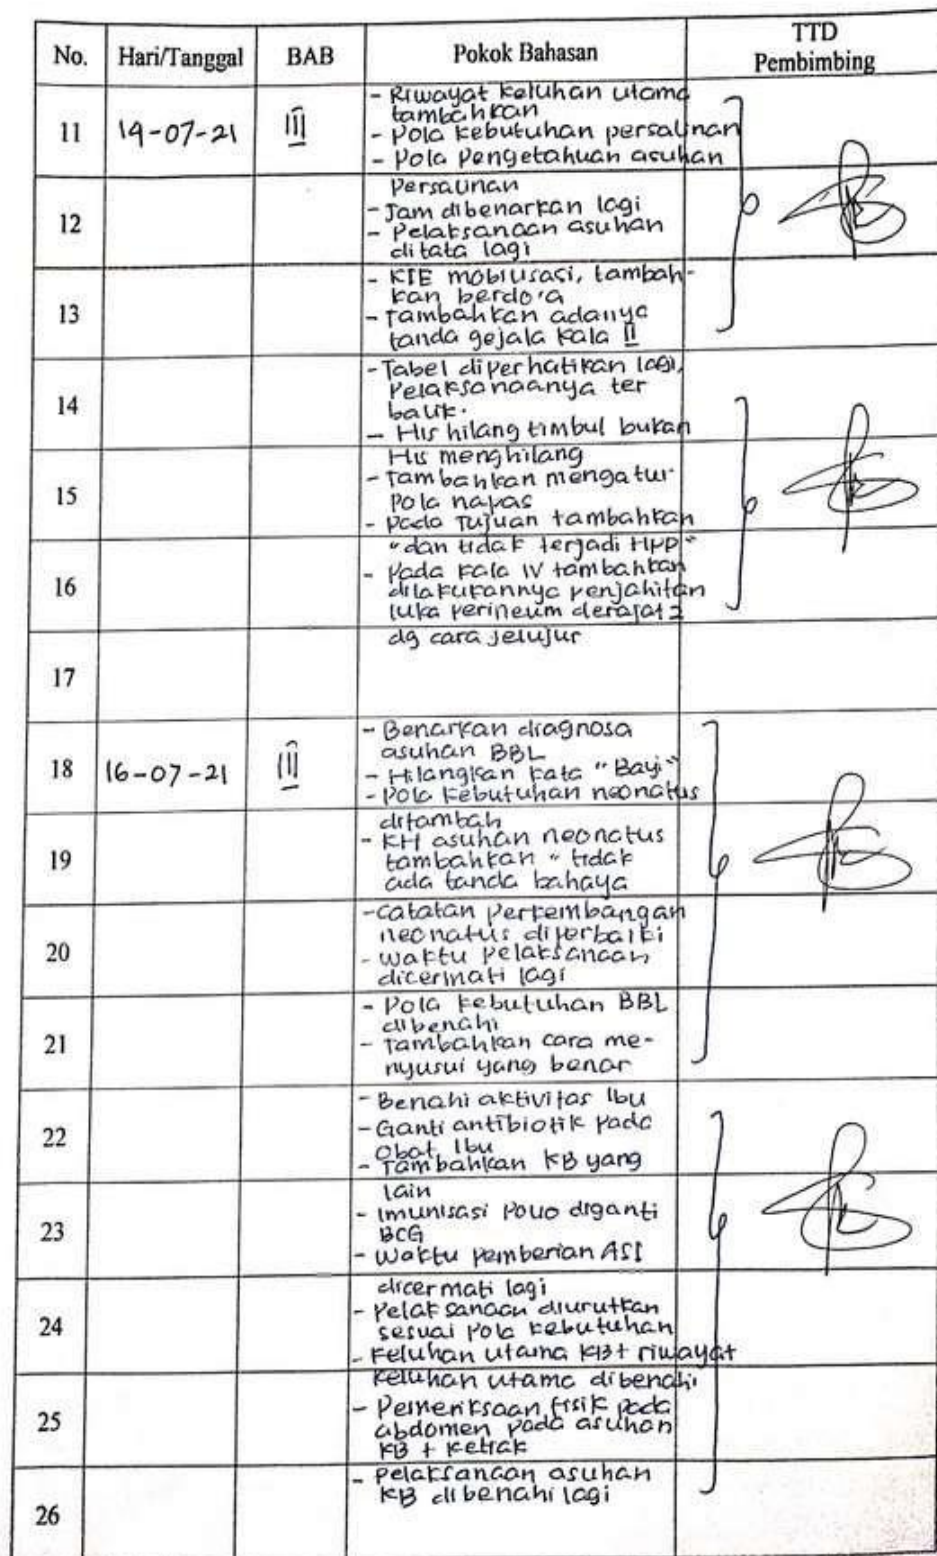 No. Hari/Tanggal BAB Pokok Bahasan TTD
Pembimbing
11 14-07-21 III - Riwayat keluhan utama
tambahkan
- Pola kebutuhan persalinan
- Pola Pengetahuan asuhan
12 Persalinan
- Jam dibenarkan lagi
- Pelaksanaan asuhan
ditata lagi
13 - KIE mobilisasi, tambah-
kan berdo'a
- Tambahkan adanya
tanda gejala kala II
14 - Tabel diperhatikan lagi,
Pelaksanaanya ter
balik.
- His hilang timbul bukan
15 His menghilang
- Tambahkan mengatur
Pola napas
- Pada Tujuan tambahkan
16 "dan tidak terjadi HPP"
- Pada kala IV tambahkan
dilakukannya penjahitan
luka perineum derajat 2
17 dg cara jelujur
18 16-07-21 III - Benarkan diagnosa
asuhan BBL
- Hilangkan kata "Bayi"
- Pola kebutuhan neonatus
19 ditambah
- KH asuhan neonatus
tambahkan " tidak
ada tanda bahaya
20 - Catatan perkembangan
neonatus diperbaiki
- waktu pelaksanaan
dicermati lagi
21 - Pola kebutuhan BBL
dibenahi
- Tambahkan cara me-
nyusui yang benar
22 - Benahi aktivitas Ibu
- Ganti antibiotik pada
Obat Ibu
- Tambahkan KB yang
23 lain
- Imunisasi Polio diganti
BCG
- Waktu pemberian ASI
24 dicermati lagi
- Pelaksanaan diurutkan
sesuai pola kebutuhan
- Keluhan utama KB + riwayat
25 keluhan utama dibenahi
- Pemeriksaan fisik pada
abdomen pada asuhan
KB + Ketiak
26 - Pelaksanaan asuhan
KB dibenahi lagi